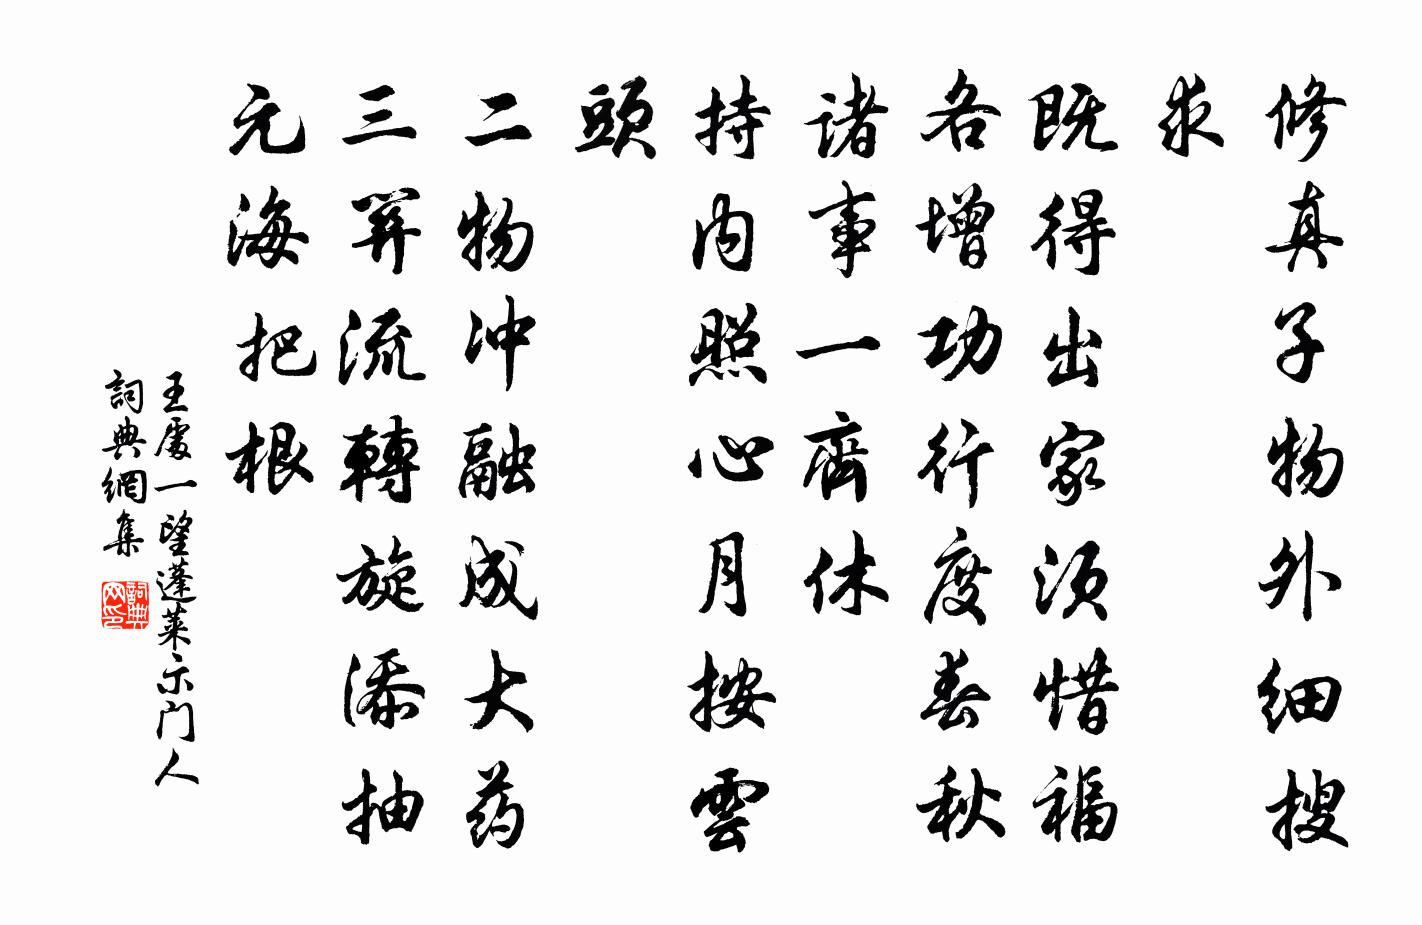 修真子物外细搜
求
既得出家须惜福
各增功行度春秋
诸事一齊休
持内照心月按雲
頭
二物冲融成大药
三关流轉旋添抽
元海把根
王處一望蓬莱示门人
詞典網集
詞典网印